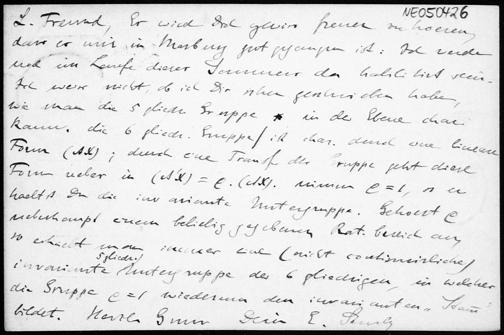 NE050426
L. Freund, Es wird Dich gewiss freuen zu hoeren,
dass es mir in Marburg gut gegangen ist: Ich werde
noch im Laufe dieses Sommers da habilitiert sein.
Ich weiss nicht, ob ich Dir schon geschrieben habe,
wie man die 5 gliedr. Gruppe in der Ebene char.
kann. die 6 gliedr. Gruppe ist char. durch eine lineare
Form (AX); durch eine Transf. der Gruppe geht diese
Form ueber in (A'X) = ϱ.(AX). nimm ϱ=1, so er
haeltst Du die invariante Untergruppe. Gehoert ϱ
ueberhaupt einem beliebig gegebenen Rat. bereich an,
so erhaelt man immer eine (nicht continuirliche)
5 gliedr.
invariante Untergruppe der 6 gliedrigen, in welcher
die Gruppe ϱ=1 wiederum den invarianten
bildet. Herzl. Gruss Dein E. Study